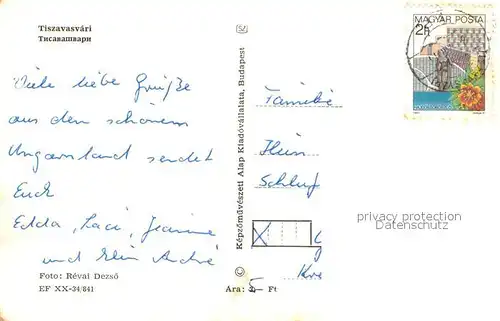 Tiszavasvári
Тисавашвари
MAGYAR POSTA
2Ft
Viele liebe Grüße
aus dem schönen
Ungarnland sendet
Euch
Edda, Laci, Jeanine
und Klein André
Foto: Révai Dezső
EF XX-34/841
Képzőművészeti Alap Kiadóvállalata, Budapest
Familie
Hein
Schluf
X
Kre
Ára: 5- Ft
privacy protection
Datenschutz